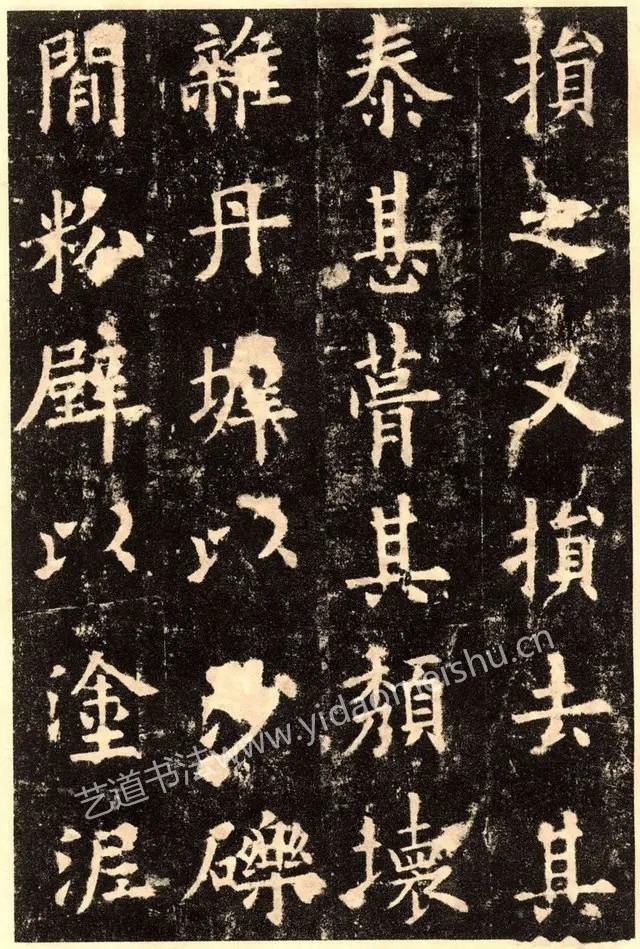 損之又損去其
泰甚葺其頹壞
雜丹墀以沙礫
閒粉壁以塗泥
艺道书法www.yidaomeishu.cn